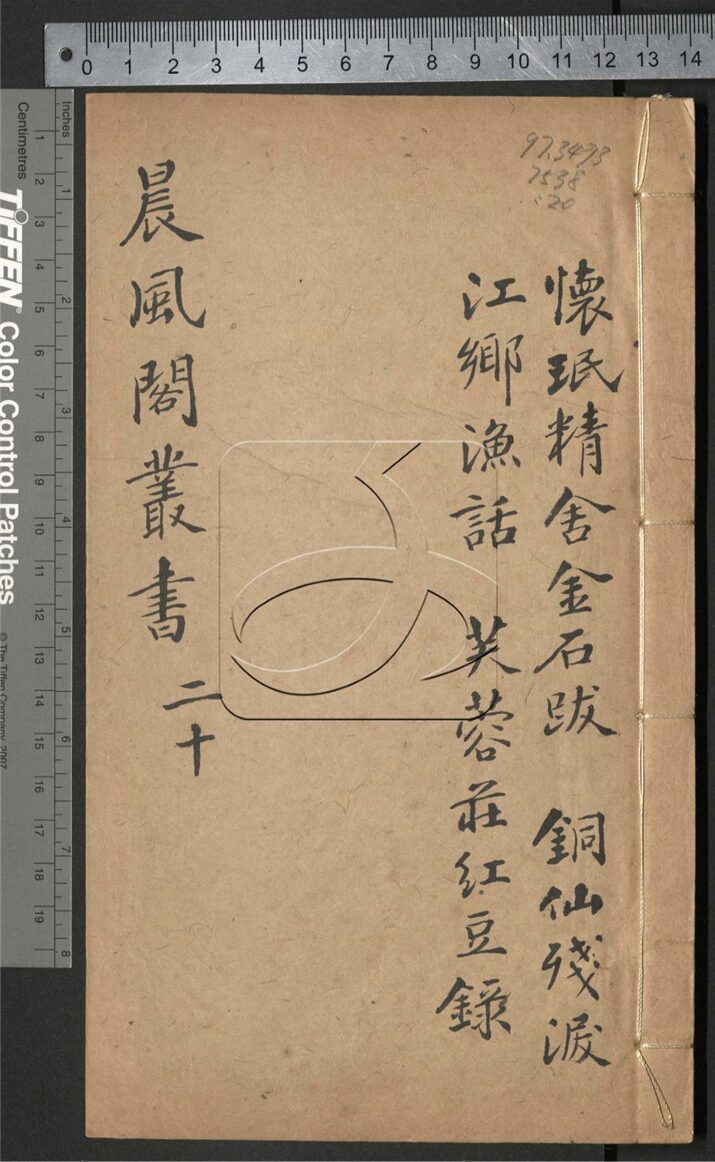 0 1 2 3 4 5 6 7 8 9 10 11 12 13 14
973.4973
7538
:20
懷珉精舍金石跋　銅仙殘淚
江鄉漁話　芙蓉莊紅豆錄
晨風閣叢書
二十
Inches
1 2 3 4 5 6 7 8
Centimetres
1 2 3 4 5 6 7 8 9 10 11 12 13 14 15 16 17 18 19
TIFFEN® Color Control Patches
© The Tiffen Company, 2007